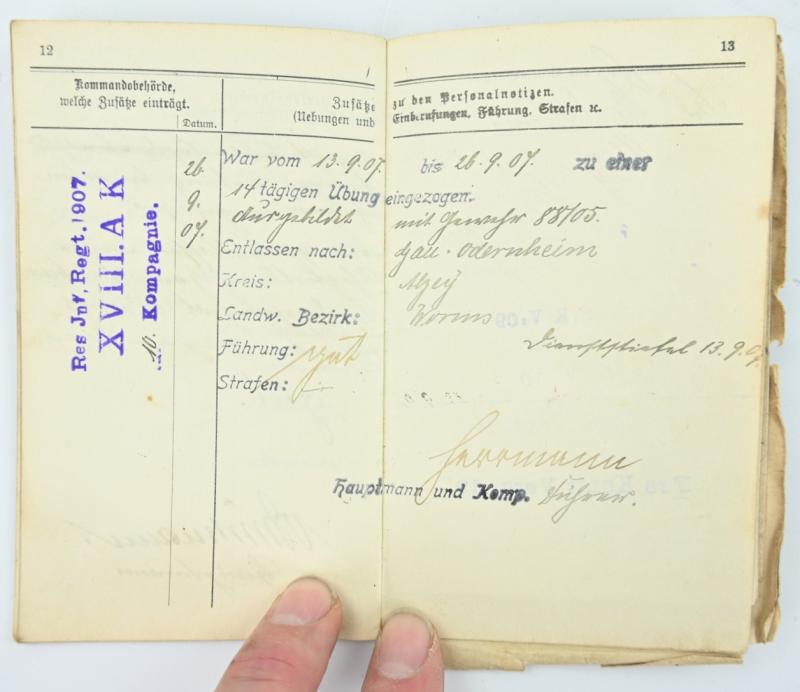 12
13
Kommandobehörde,
welche Zusätze einträgt.
Datum.
Zusätze zu den Personalnotizen.
(Uebungen und Einberufungen, Führung, Strafen ꝛc.
Res Jnf, Regt. 1907.
XVIII. A K
10. Kompagnie.
26.
9.
07.
War vom 13.9.07. bis 26.9.07. zu einer
14 tägigen Übung eingezogen.
Ausgebildet mit Gewehr 88/05.
Entlassen nach: Gau-Odernheim
Kreis: Alzey
Landw. Bezirk: Worms
Führung: gut
Dienststiefel 13.9.0
Strafen: —
Herrmann
Hauptmann und Komp. Führer.